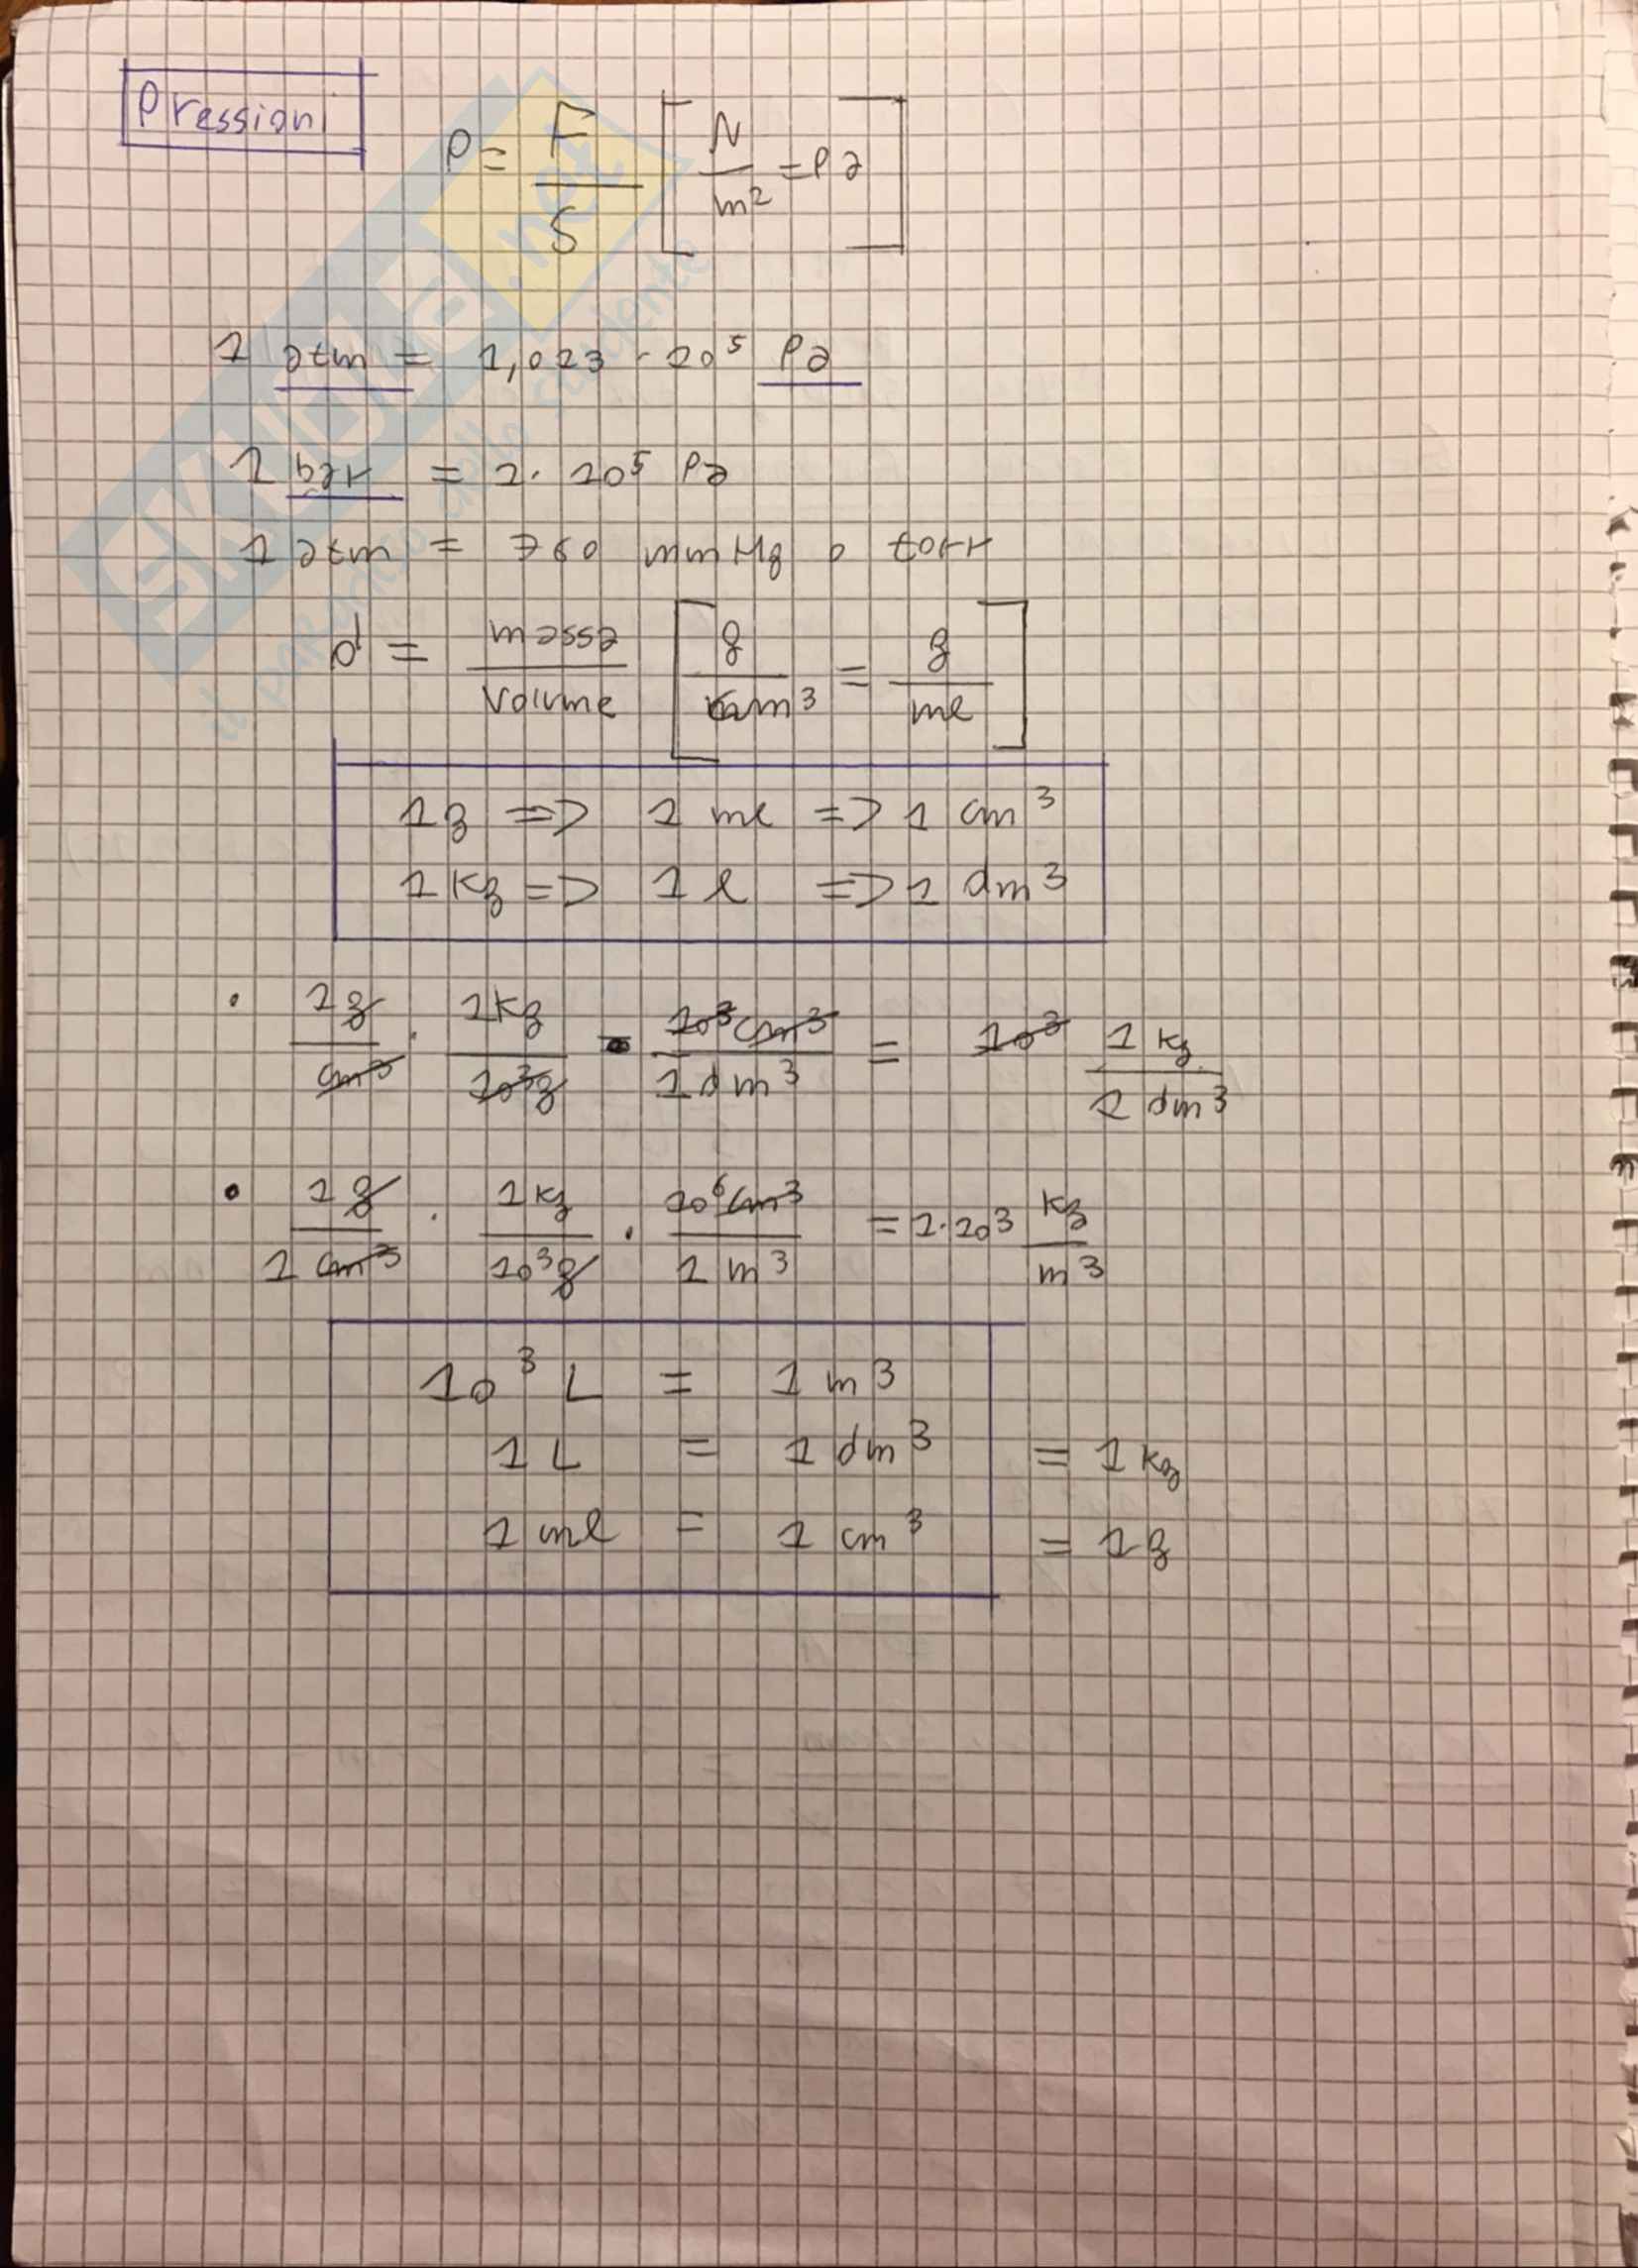 Pressioni
P = F/S [N/m² = Pa]
1 atm = 1,013 · 10⁵ Pa
1 bar = 1 · 10⁵ Pa
1 atm = 760 mmHg o torr
d = massa/volume [g/cm³ = g/ml]
1g => 1 ml => 1 cm³
1 kg => 1 l => 1 dm³
· 1g/cm³ · 1kg/10³g · 10³cm³/1dm³ = 10³ 1 kg/1 dm³
· 1g/1cm³ · 1kg/10³g · 10⁶cm³/1 m³ = 1·10³ kg/m³
10³ L = 1 m³
1 L = 1 dm³ = 1 kg
1 ml = 1 cm³ = 1g
SKUOLA.net
il paradiso dello studente